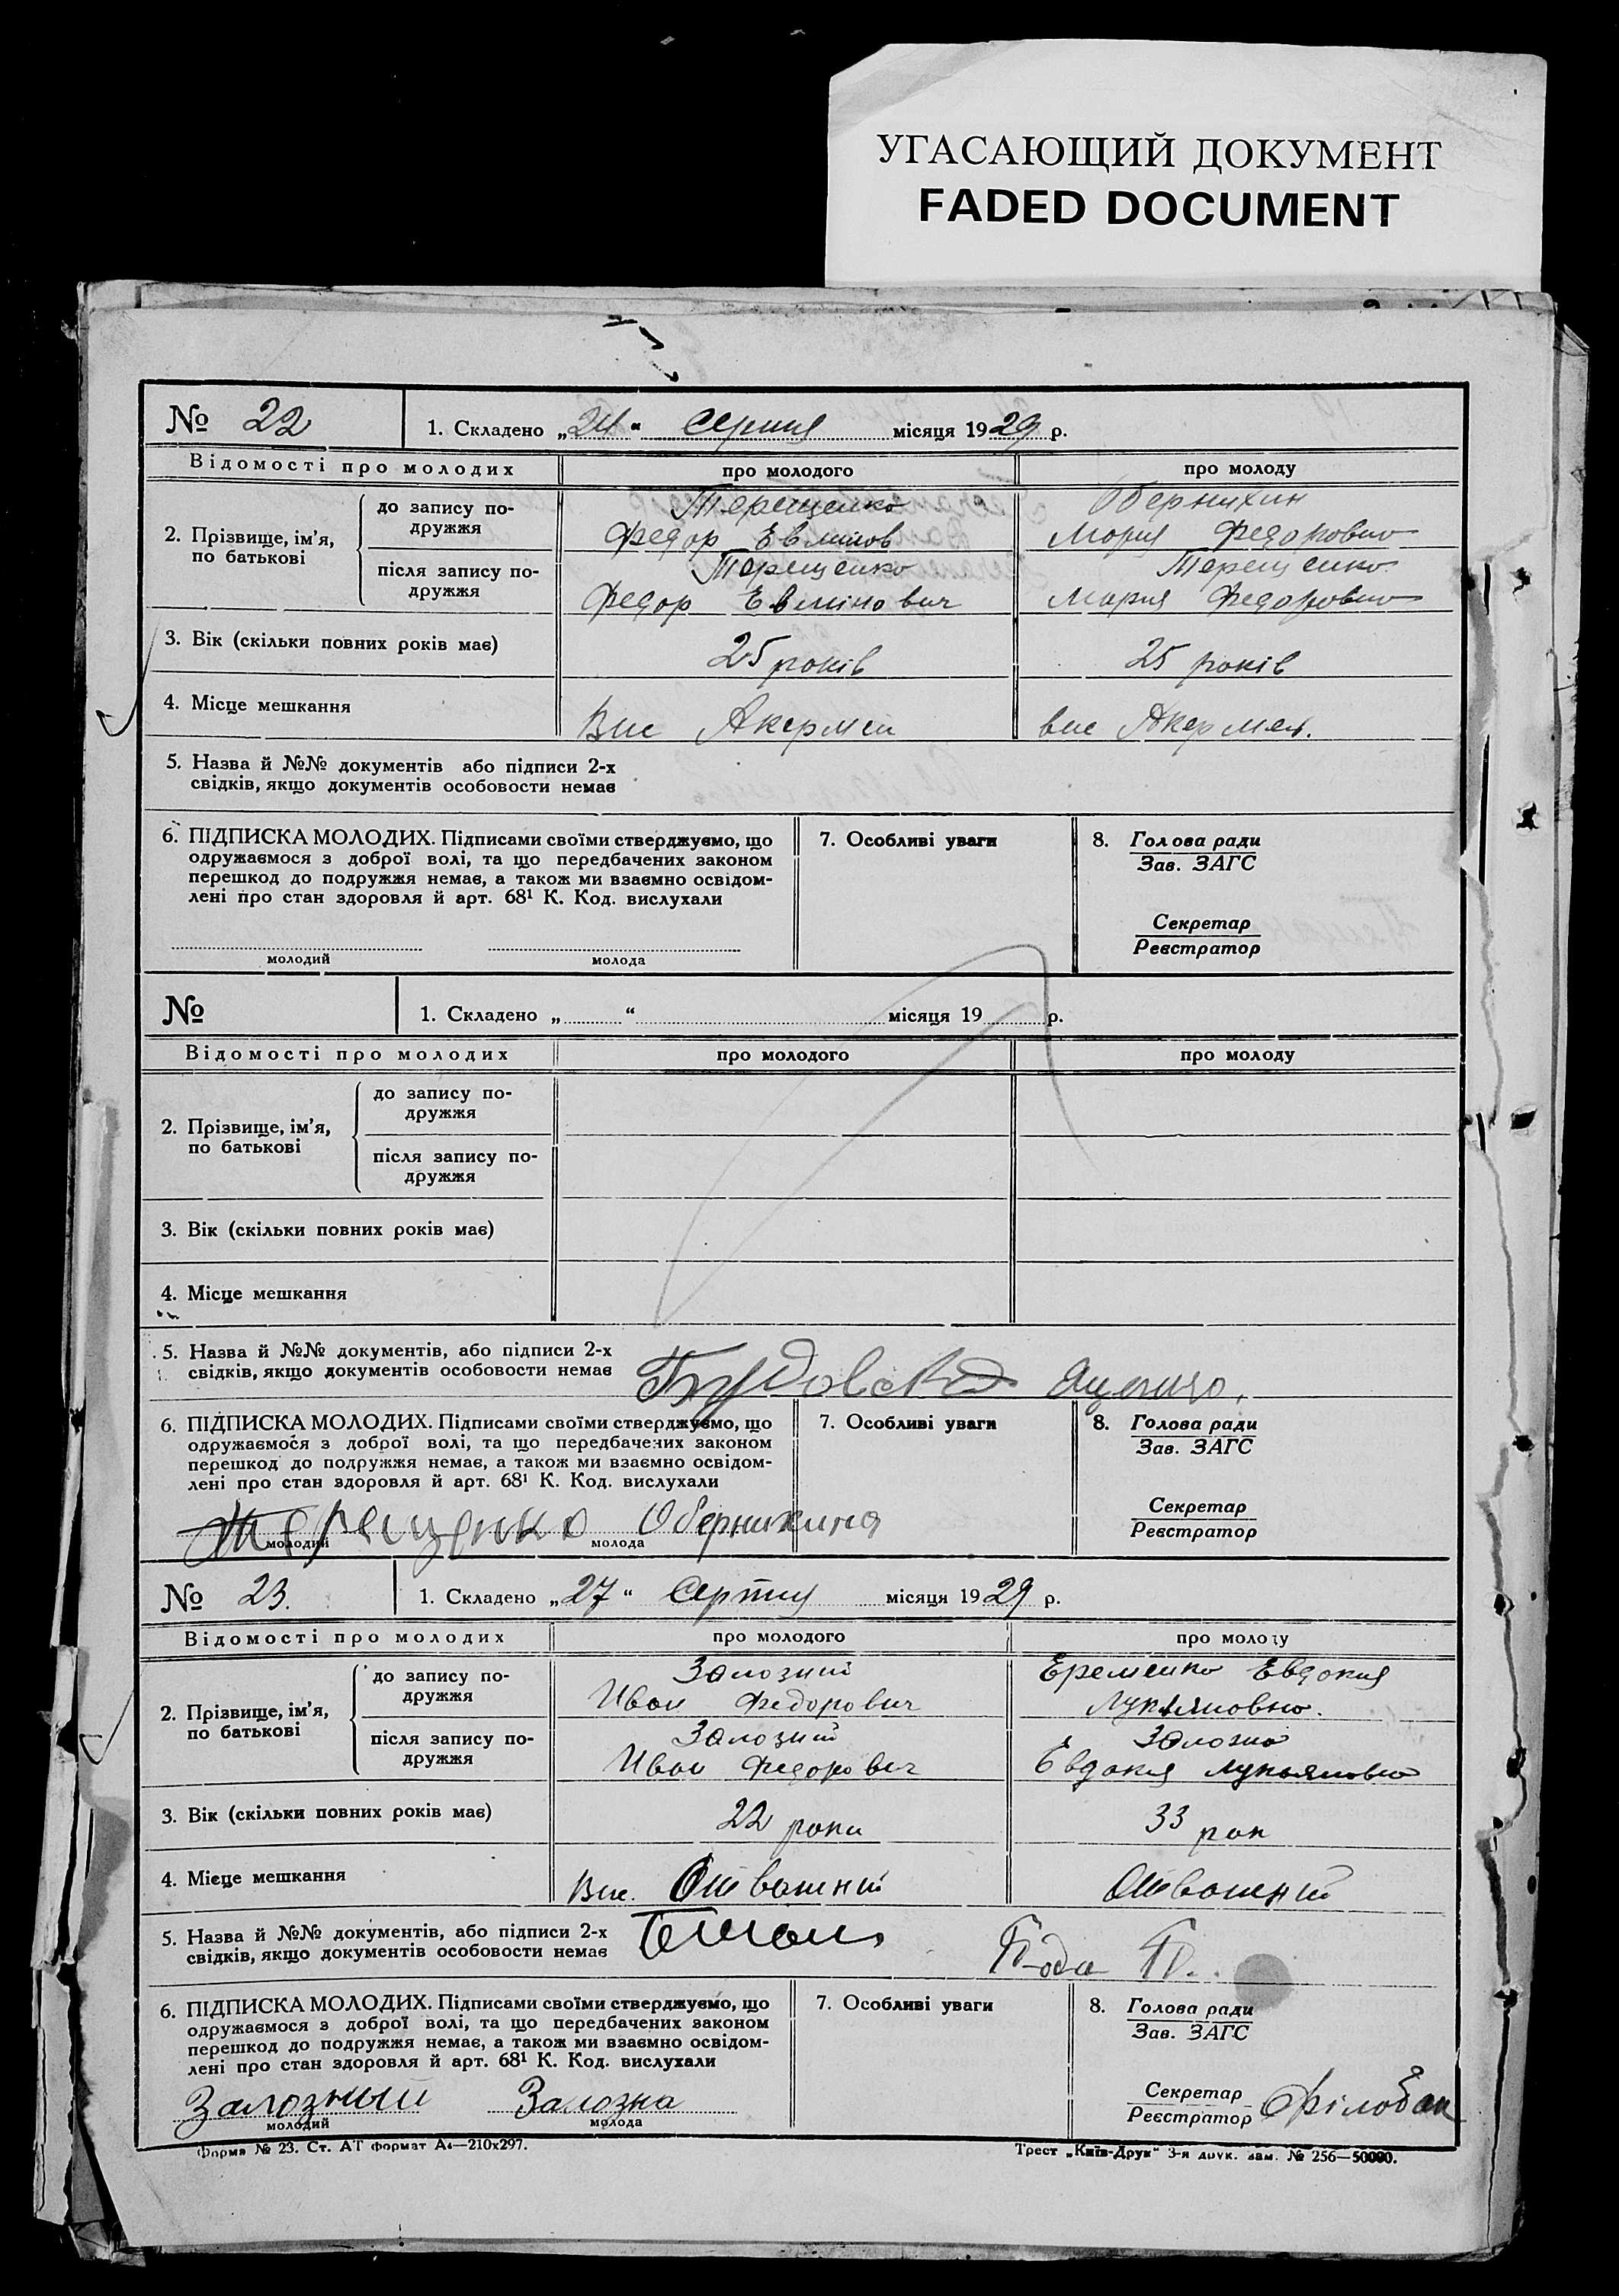 УГАСАЮЩИЙ ДОКУМЕНТ
FADED DOCUMENT
№ 22
1. Складено „24“ серпня місяця 1929 р.
Відомості про молодих
про молодого
про молоду
2. Прізвище, ім'я, по батькові
до запису подружжя
Терещенко
Федор Евминов
Обернихин
Мария Федоровно
після запису подружжя
Терещенко
Федор Евмінович
Терещенко
Мария Федоровно
3. Вік (скільки повних років має)
25 років
25 років
4. Місце мешкання
Вис Акермен
вис Акермен.
5. Назва й №№ документів або підписи 2-х
свідків, якщо документів особовости немає
6. ПІДПИСКА МОЛОДИХ. Підписами своїми стверджуємо, що
одружаємося з доброї волі, та що передбачених законом
перешкод до подружжя немає, а також ми взаємно освідом-
лені про стан здоровля й арт. 68¹ К. Код. вислухали
молодий
молода
7. Особливі уваги
8. Голова ради
Зав. ЗАГС
Секретар
Реєстратор
№
1. Складено „ “ місяця 19 р.
Відомості про молодих
про молодого
про молоду
2. Прізвище, ім'я,
по батькові
до запису по-
дружжя
після запису по-
дружжя
3. Вік (скільки повних років має)
4. Місце мешкання
5. Назва й №№ документів, або підписи 2-х
свідків, якщо документів особовости немає
6. ПІДПИСКА МОЛОДИХ. Підписами своїми стверджуємо, що
одружаємося з доброї волі, та що передбачених законом
перешкод до подружжя немає, а також ми взаємно освідом-
лені про стан здоровля й арт. 68¹ К. Код. вислухали
Терещенко Обернихина
молодий
молода
7. Особливі уваги
8. Голова ради
Зав. ЗАГС
Секретар
Реєстратор
№ 23.
1. Складено „27“ Серпня місяця 1929 р.
Відомості про молодих
про молодого
про молоду
2. Прізвище, ім'я,
по батькові
до запису по-
дружжя
Залозний
Иван Федорович
Еременко Евдокия
Лукяновно.
після запису по-
дружжя
Залозний
Иван Федорович
Залозна
Евдокия Лукьяновно
3. Вік (скільки повних років має)
22 роки
33 рок
4. Місце мешкання
Вис.
5. Назва й №№ документів, або підписи 2-х
свідків, якщо документів особовости немає
6. ПІДПИСКА МОЛОДИХ. Підписами своїми стверджуємо, що
одружаємося з доброї волі, та що передбачених законом
перешкод до подружжя немає, а також ми взаємно освідом-
лені про стан здоровля й арт. 68¹ К. Код. вислухали
Залозный Залозна
молодий
молода
7. Особливі уваги
8. Голова ради
Зав. ЗАГС
Секретар
Реєстратор
Форма № 23. Ст. АТ Формат А4—210х297.
Трест „Київ-Друк“ 3-я друк. зам. № 256—50000.